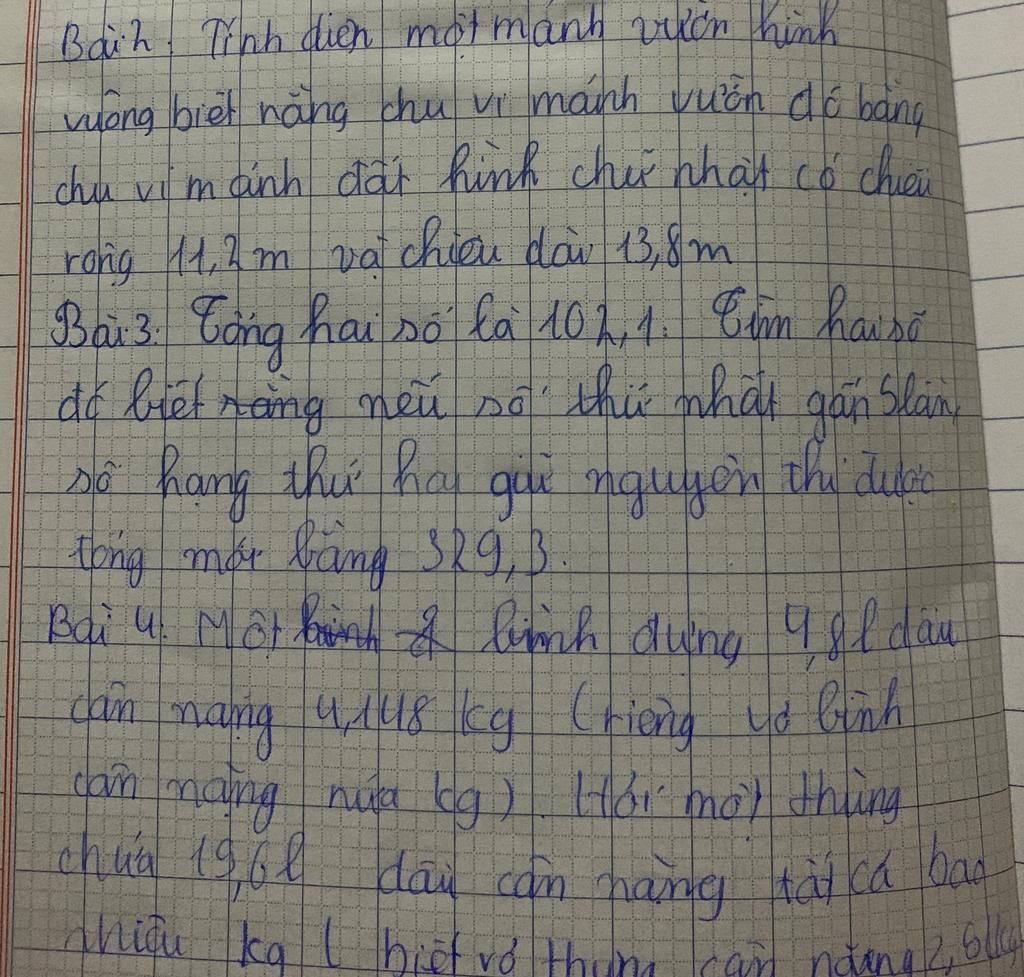 Bài 2. Tính diện một mảnh vườn hình
vuông biết rằng chu vi mảnh vườn đó bằng
chu vi mảnh đất hình chữ nhật có chiều
rộng 11,2 m và chiều dài 13,8 m
Bài 3. Tổng hai số là 102,1. Tìm hai số
đó biết rằng nếu số thứ nhất gấp 5 lần,
số hạng thứ hai giữ nguyên thì được
tổng mới bằng 329,3.
Bài 4. Một bình đựng 4,8l dầu
cân nặng 4,148 kg (riêng vỏ bình
cân nặng nửa kg). Hỏi một thùng
chứa 19,6l dầu cân nặng tất cả bao
nhiêu kg ( biết vỏ thùng cân nặng